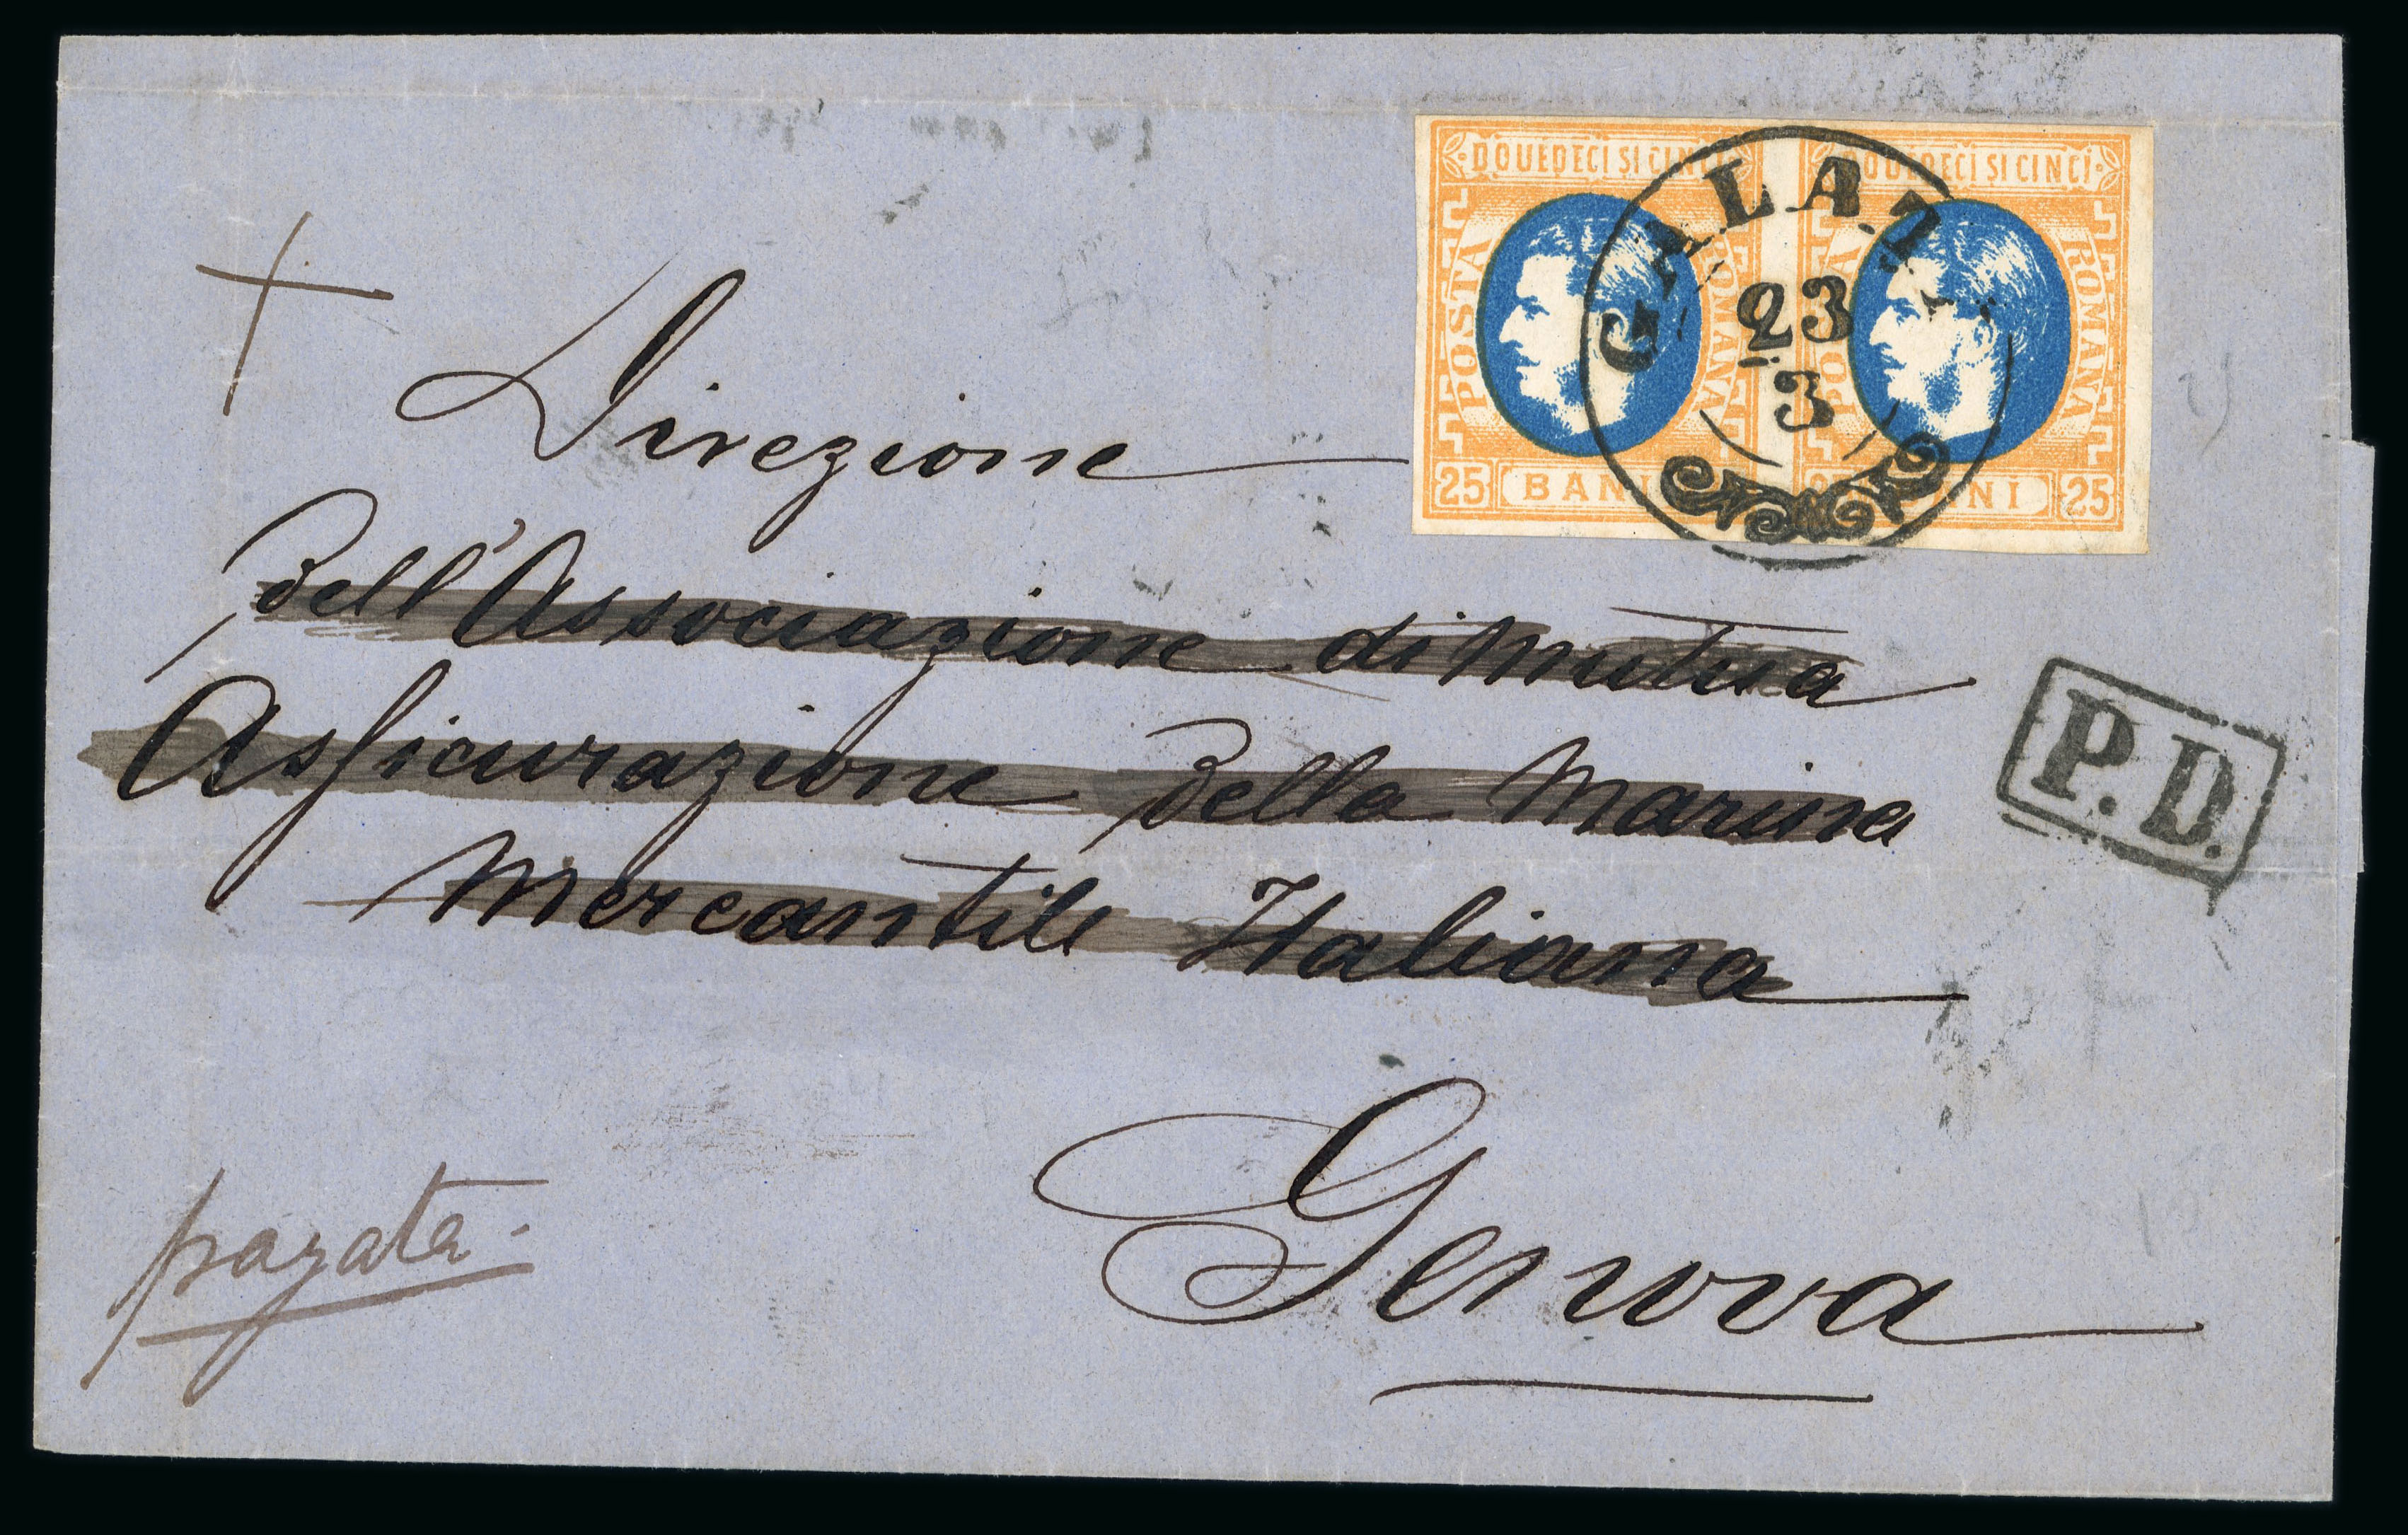 DOUEDECI SI CINCI DOUEDECI SI CINCI
POSTA ROMANA POSTA ROMANA
25 BANI 25 BANI 25
GALATZ
23
3
Direzione
Dell'Associazione di Mutua
Assicurazione Della Marina
Mercantile Italiana
P.D.
Genova
pagata